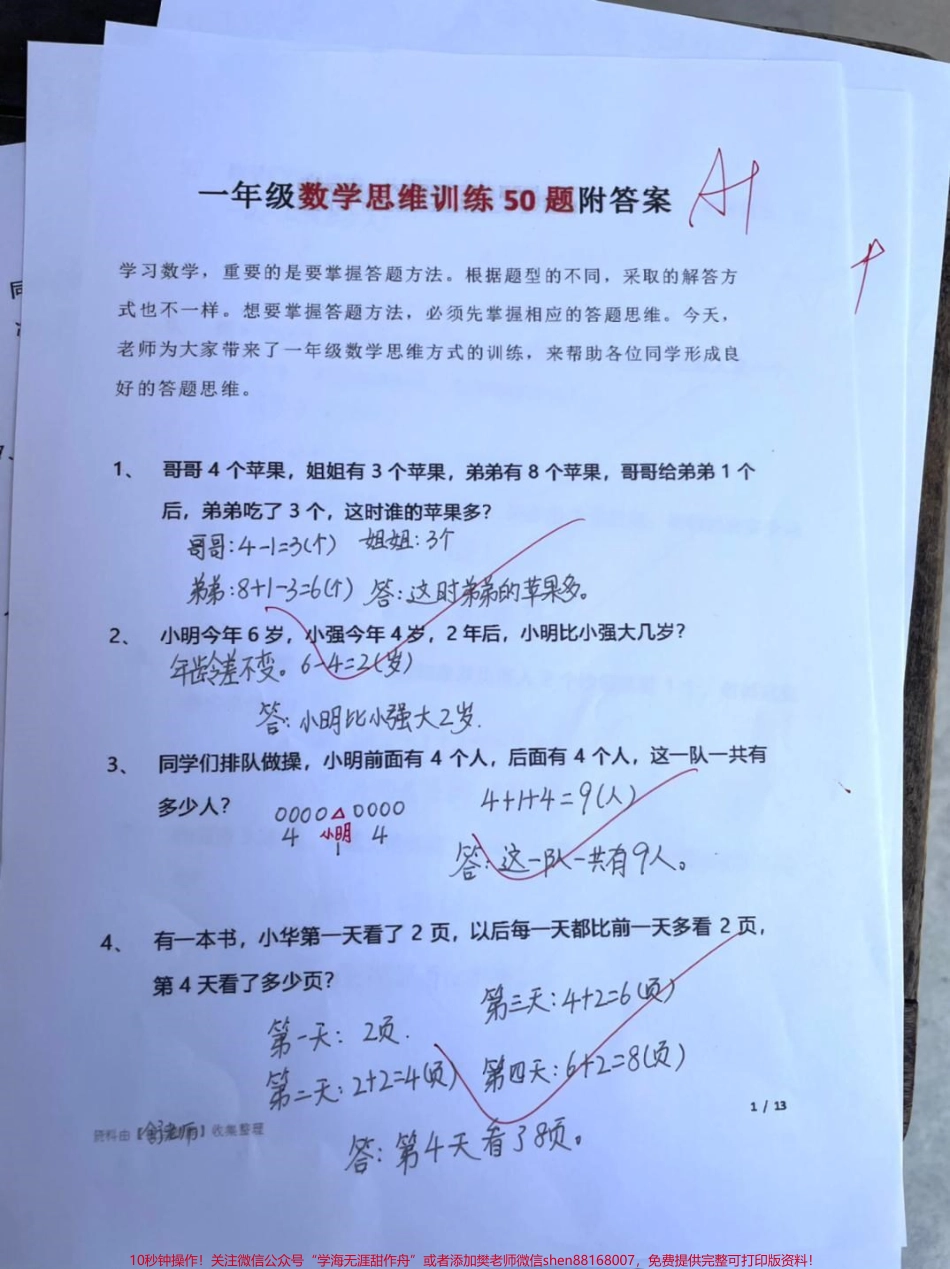 一年级数学思维训练 50 题附答案
A+
学习数学，重要的是要掌握答题方法。根据题型的不同，采取的解答方
式也不一样。想要掌握答题方法，必须先掌握相应的答题思维。今天，
老师为大家带来了一年级数学思维方式的训练，来帮助各位同学形成良
好的答题思维。
1、 哥哥 4 个苹果，姐姐有 3 个苹果，弟弟有 8 个苹果，哥哥给弟弟 1 个
后，弟弟吃了 3 个，这时谁的苹果多？
哥哥：4-1=3(个) 姐姐：3个
弟弟：8+1-3=6(个) 答：这时弟弟的苹果多。
2、 小明今年 6 岁，小强今年 4 岁，2 年后，小明比小强大几岁？
年龄差不变。6-4=2(岁)
答：小明比小强大2岁.
3、 同学们排队做操，小明前面有 4 个人，后面有 4 个人，这一队一共有
多少人？
OOOO△OOOO 4+1+4=9(人)
4 小明 4
1
答：这一队一共有9人。
4、 有一本书，小华第一天看了 2 页，以后每一天都比前一天多看 2 页，
第 4 天看了多少页？
第一天： 2页. 第三天：4+2=6(页)
第二天：2+2=4(页) 第四天：6+2=8(页)
1 / 13
资料由【舒老师】收集整理
答：第4天看了8页。
10秒钟操作！关注微信公众号“学海无涯甜作舟”或者添加樊老师微信shen88168007，免费提供完整可打印版资料！